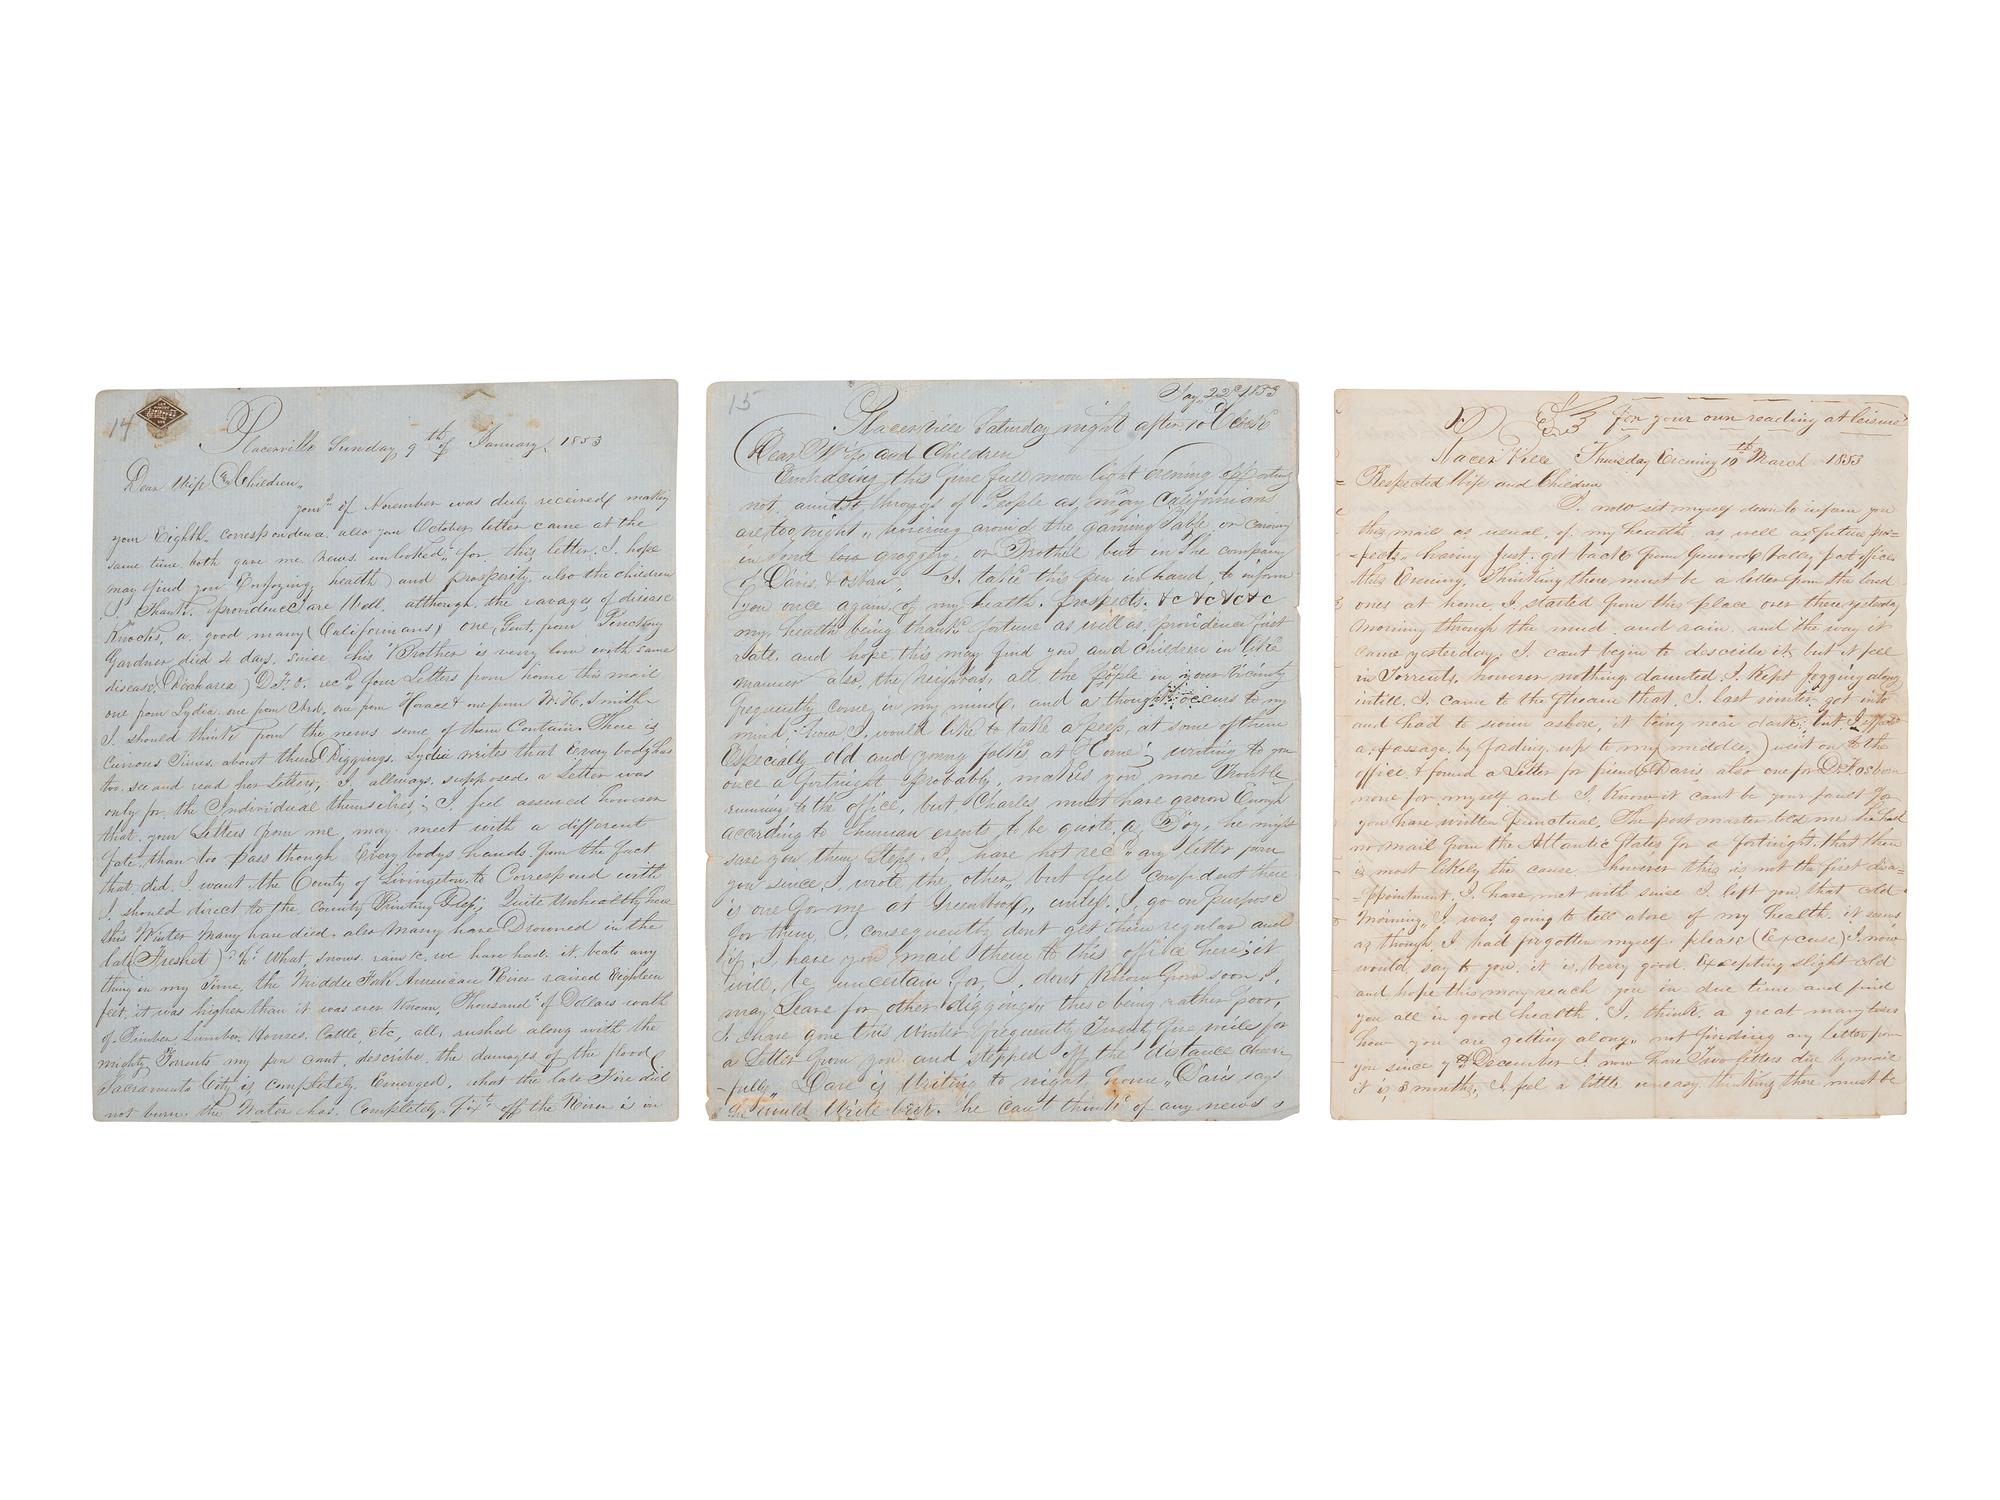 14
Placerville Sunday 9th of January, 1853
Dear Wife & Children,
yours of November was duly received making
your Eighth correspondence also you October letter came at the
same time both gave me news unlooked for this letter I hope
may find you Enjoying health and prosperity also the children
I Thank providence are Well although the ravages of disease
Knocks a good many (Californians) one Gent from
Gardner died 4 days since his Brother is very low with same
disease D. F. O. recd four Letters from home this mail
one from Lydia one from Ard, one from Horace & one from W. H. Smith
I should think from the news some of them Contain There is
Curious Times about them Diggings, Lydia writes that Every body has
too see and read her Letters, I allways supposed a Letter was
only for the Individual themselves; I feel assured however
that your Letters from me may meet with a different
fate than too pass though Every bodys hands from the fact
that did I want the County of Livingston to Correspond with
I should direct to the County Printing Press; Quite Unhealthy here
this Winter Many have died also Many have Drowned in the
late (Freshet) What snows rain &c we have had it beats any
thing in my Time, the Middle Fork American River raised Eighteen
feet, it was higher than it was ever Known, Thousands of Dollars worth
of Timber Lumber, Houses, Cattle, etc, all, rushed along with the
mighty Torrents my pen cant describe the damages of the flood
Sacramento City is completely Emerged, what the late Fire did
not burn the Water has Completely off the River is in
15
Jay. 22d 1853
Placerville Saturday night after 10 Oclock
Dear Wife and Children
Embracing this fine full moon light evening
not amidst throngs of People as many Californians
are too night hovering around the gaming Table or
in some groggery, or Brothel but in the company
of Davis & Osborn I take this pen in hand to inform
you once again of my health. prospects &c &c &c &c
my health being thanks fortune as well as providence first
rate and hope this may find you and children in like
manner also, the neighbors, all the people in your vicinity
frequently come in my mind, and a thought occurs to my
mind how I would like to take a peep at some of them
Especially old and young folks at Home, writing to you
once a fortnight probably makes you more Trouble
running to the office, but Charles must have grown Enough
according to human events to be quote a Boy, he might
save you them Steps. I have not recd any letter from
you since I wrote the other, but feel confident there
is one for me at Greenwood, unless I go on purpose
for them I consequently dont get them regular and
if I have you mail them to this office here it
will be uncertain for I dont know how soon I
may Leave for other diggings these being rather poor,
I have gone this Winter frequently Twenty five miles for
a Letter from you and stepped off the distance cheer-
fully Dave is Writing to night home, Davis says
he would Write but he cant think of any news
for your own reading at leisure
Placer Ville Thursday Evening 10th March 1853
Respected Wife and Children
I now set myself down to inform you
this mail as usual, of my health as well as future pros-
-pects, having just got back from Greenwood Valley post office
this Evening, Thinking there must be a letter from the loved
ones at home I started from this place over there yesterday
morning through the mud and rain and the way it
came yesterday I cant begin to describe it but it fell
in Torrents, however nothing daunted I Kept jogging along
intill I came to the stream that I last winter got into
and had to swim ashore, it being near dark but I
a passage by fording up to my middle,) went on to the
office & found a Letter for friend Davis also one for D. F. Osborn
none for myself and I Know it cant be your fault for
you have written punctual, The post master told me he had
no mail from the Atlantic States for a fortnight that then
is most likely the cause however this is not the first disa=
=ppointment I have met with since I left you that cold
morning I was going to tell above of my health it seems
as though I had forgotten myself please (Excuse) I now
would say to you it is very good Excepting slight cold
and hope this may reach you in due time and find
you all in good health. I think a great many times
how you are getting along, not finding any letter from
you since 7th December I now have Two letters due by mail
it is 3 months, I feel a little uneasy thinking there must be